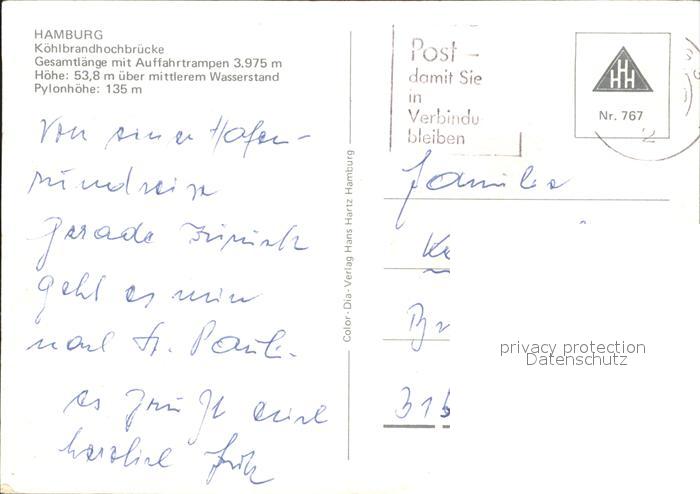 HAMBURG
Köhlbrandhochbrücke
Gesamtlänge mit Auffahrtrampen 3.975 m
Höhe: 53,8 m über mittlerem Wasserstand
Pylonhöhe: 135 m
Von einer Hafen-
rundreise
gerade zurück
geht es nun
nach St. Pauli.
es grüßt euch
herzlich
Color-Dia-Verlag Hans Hartz Hamburg
Post –
damit Sie
in
Verbindu
bleiben
HHH
Nr. 767
Familie
Ke
Br
31
privacy protection
Datenschutz